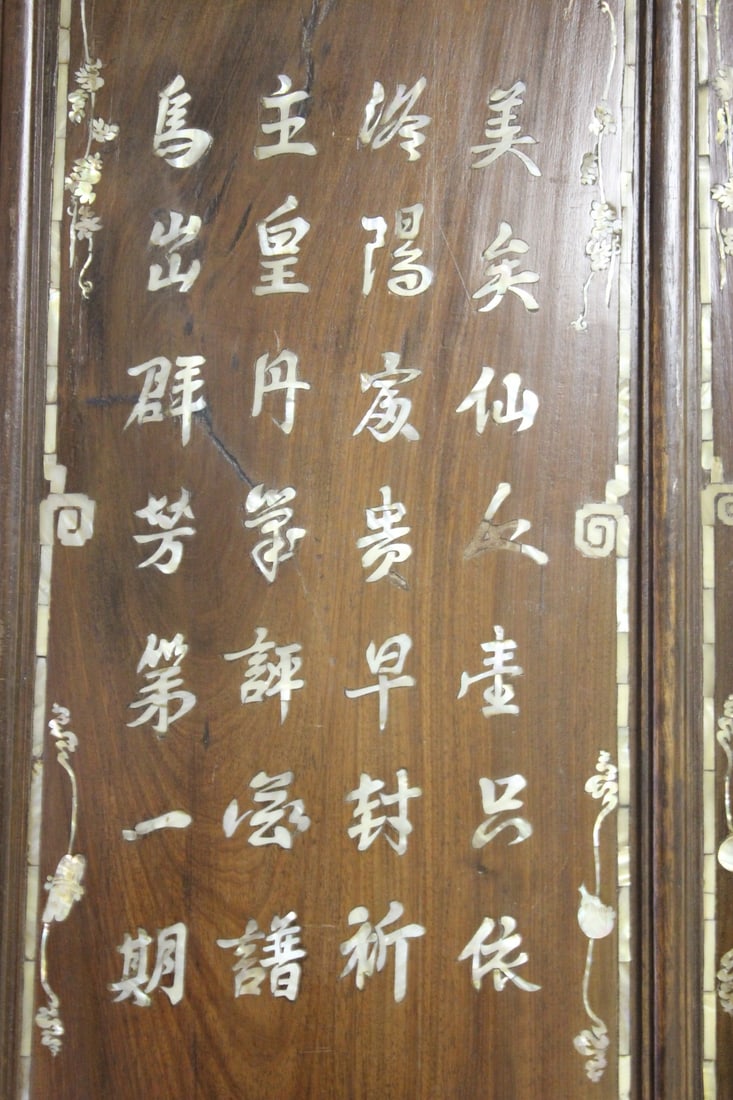 美矣仙人壹只依
洛陽富貴早封祈
主皇丹筆評花譜
為出群芳第一期